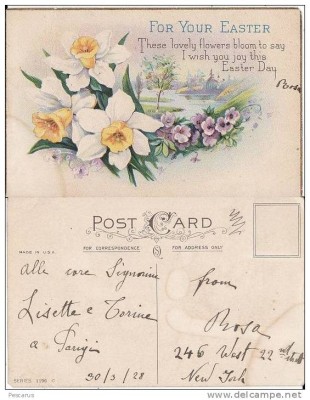 FOR YOUR EASTER
These lovely flowers bloom to say
I wish you joy this
Easter Day
Rosa
POST CARD
MADE IN U.S.A.
FOR CORRESPONDENCE
FOR ADDRESS ONLY
Alle care Signorine
Lisette e Torine
a Parigi
30/3/28
from
Rosa
246 West 22nd
New York
© Delcampe.net
Pescarius